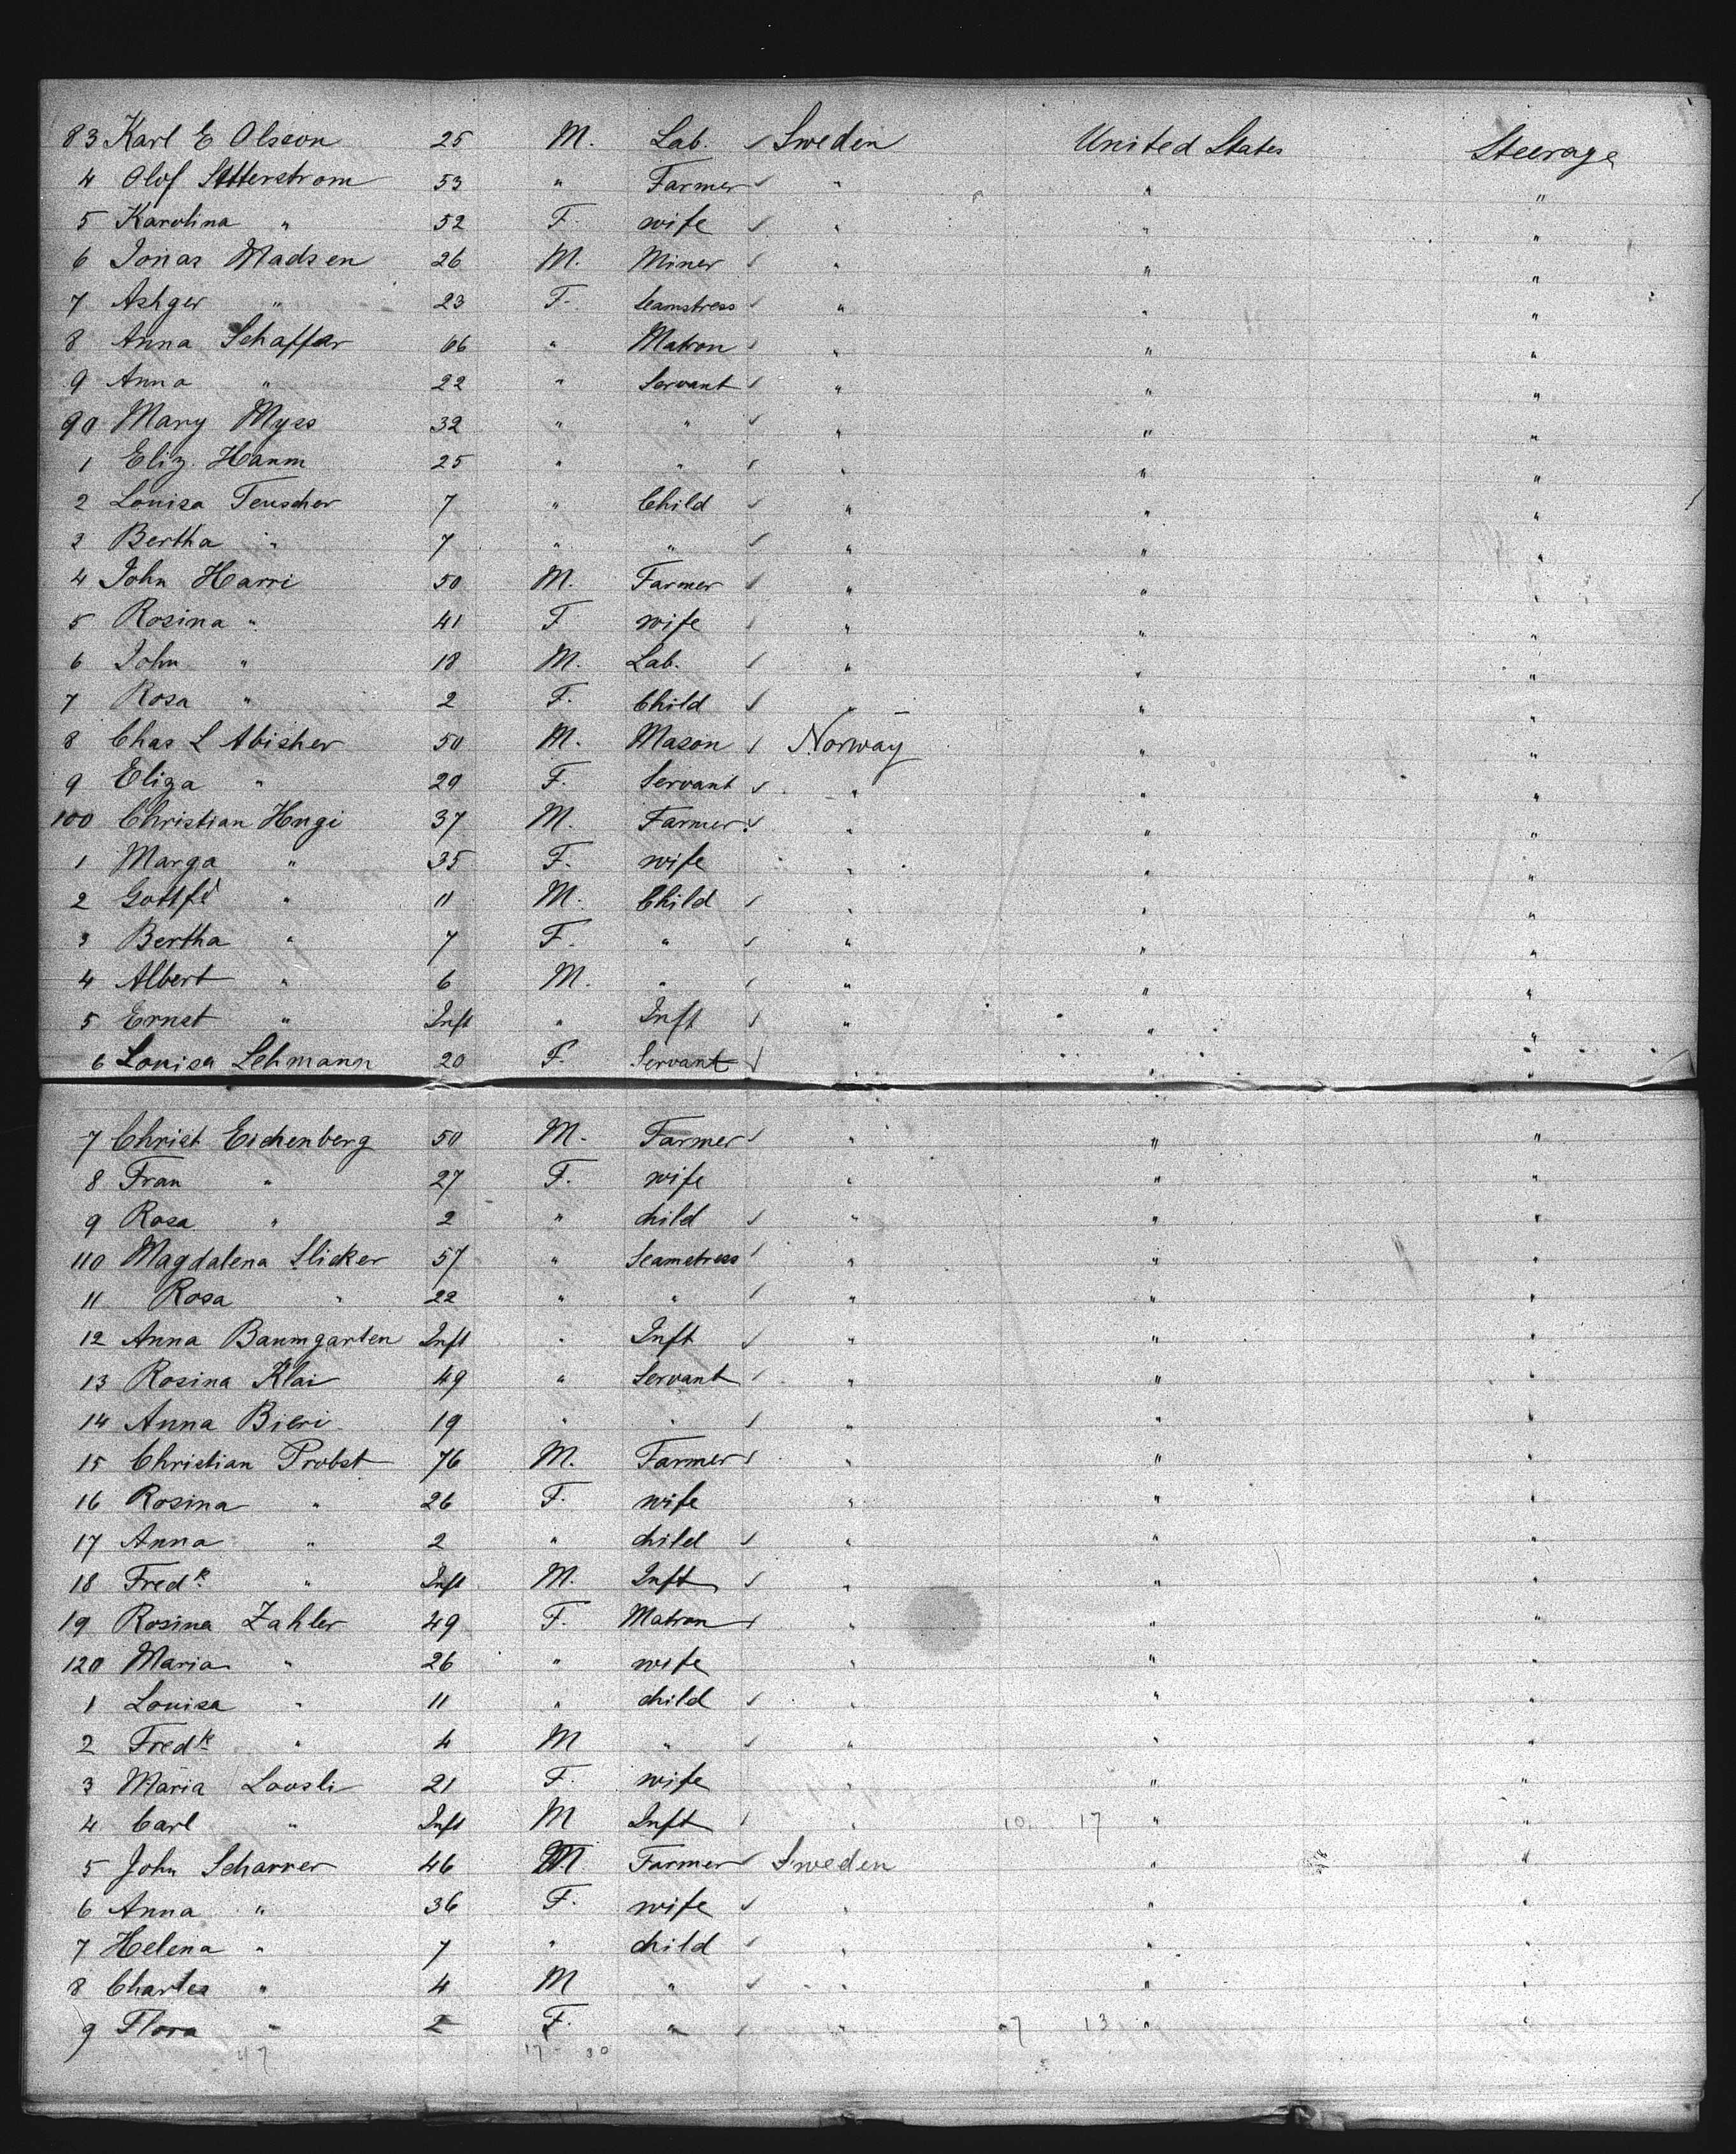 83 Karl E Olsson 25 M. Lab. Sweden United States Steerage
4 Olof Setterstrom 53 " Farmer " " "
5 Karolina " 52 F. wife " " "
6 Jonas Madsen 26 M. Miner " " "
7 Ashger " 23 F. Seamstress " " "
8 Anna Schaffer 66 " Matron " " "
9 Anna " 22 " Servant " " "
90 Mary Myss 32 " " " " "
1 Eliz. Hamm 25 " " " " "
2 Louisa Teuscher 7 " Child " " "
3 Bertha " 7 " " " " "
4 John Harri 50 M. Farmer " " "
5 Rosina " 41 F wife " " "
6 John " 18 M. Lab. " " "
7 Rosa " 2 F. Child " " "
8 Chas L Abisher 50 M. Mason Norway " "
9 Eliza " 29 F. Servant " " "
100 Christian Hugi 37 M. Farmer " " "
1 Marga " 35 F. wife " " "
2 Gottfd " 11 M. Child " " "
3 Bertha " 7 F. " " " "
4 Albert " 6 M. " " " "
5 Ernst " Inft " Inft " " "
6 Louisa Lehmann 20 F. Servant " " "
7 Christ Eichenberg 50 M. Farmer " " "
8 Fran " 27 F. wife " " "
9 Rosa " 2 " child " " "
110 Magdalena Slicker 57 " Seamstress " " "
11 Rosa " 22 " " " " "
12 Anna Baumgarten Inft " Inft " " "
13 Rosina Klai 49 " Servant " " "
14 Anna Bieri 19 " " " " "
15 Christian Probst 76 M. Farmer " " "
16 Rosina " 26 F. wife " " "
17 Anna " 2 " child " " "
18 Fredk " Inft M. Inft " " "
19 Rosina Zahler 49 F. Matron " " "
120 Maria " 26 " wife " " "
1 Louisa " 11 " child " " "
2 Fredk " 4 M " " " "
3 Maria Loosli 21 F. wife " " "
4 Carl " Inft M Inft " 10 17 " "
5 John Scharrer 46 M Farmer Sweden " "
6 Anna " 36 F. wife " " "
7 Helena " 7 " child " " "
8 Charles " 4 M " " " "
9 Flora " 2 F. " " 7 13 " "
47 17 30